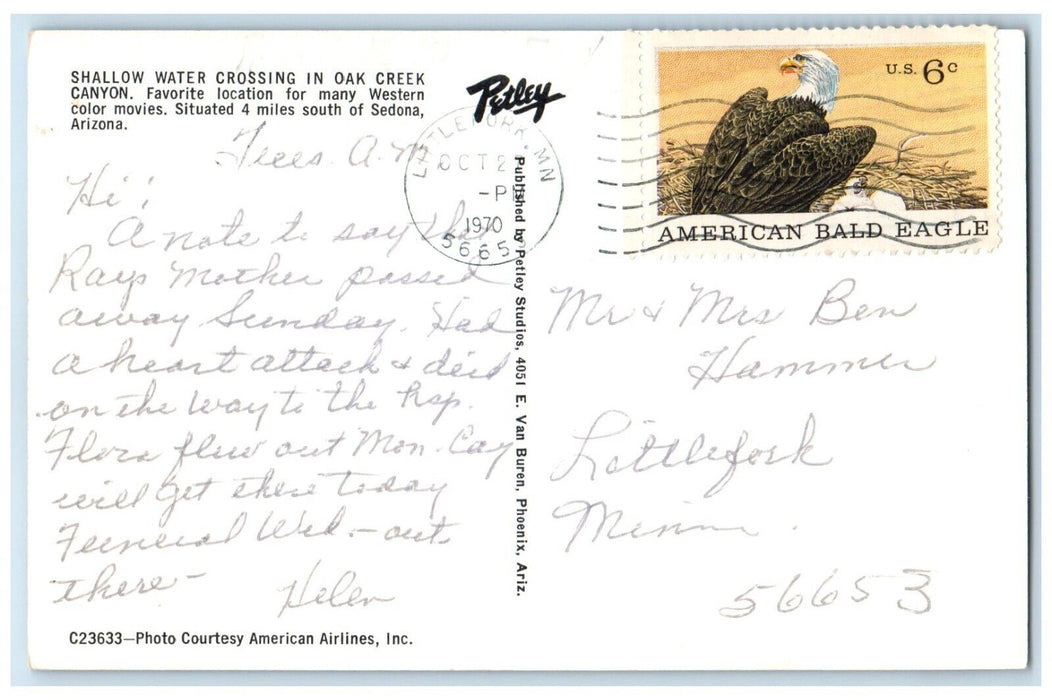 SHALLOW WATER CROSSING IN OAK CREEK
CANYON. Favorite location for many Western
color movies. Situated 4 miles south of Sedona,
Arizona.
Petley
U.S. 6c
AMERICAN BALD EAGLE
LITTLEFORK, MN
OCT 2
-P
1970
5665
Tues. A.M
Hi!
A note to say that
Rays Mother passed
away Sunday. Had
a heart attack & died
on the way to the hsp.
Flora flew out Mon. Cay
will get there today
Funeral Wed. - out
there -
Helen
Published by Petley Studios, 4051 E. Van Buren, Phoenix, Ariz.
Mr & Mrs Ben
Hammer
Littlefork
Minn.
56653
C23633—Photo Courtesy American Airlines, Inc.